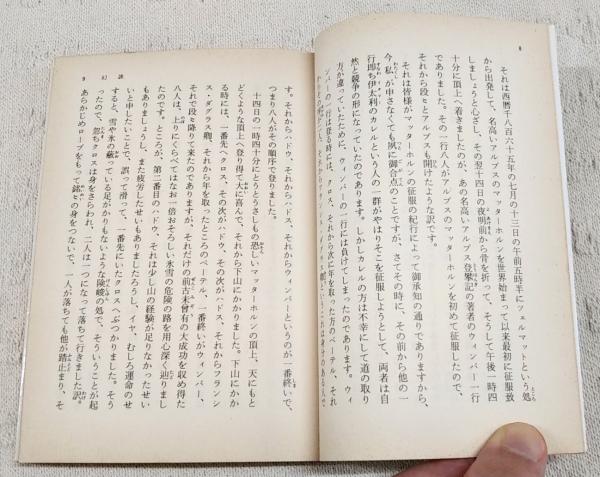 8
それは西暦千八百六十五年の七月の十三日の午前五時半にツェルマットという処
から出発して、名高いアルプスのマッターホルンを世界始まって以来最初に征服致
しましょうと心ざし、その翌十四日の夜明前から骨を折って、そうして午後一時四
十分に頂上へ着きましたのが、あの名高いアルプス登攀記の著者のウィンパー一行
でありました。その一行八人がアルプスのマッターホルンを初めて征服したので、
それから段々とアルプスも開けたような訳です。
それは皆様がマッターホルンの征服の紀行によって御承知の通りでありますから、
今私が申さなくも夙に御合点のことですが、さてその時に、その前から他の一
行即ち伊太利のカレルという人の一群がやはりそこを征服しようとして、両者は自
然と競争の形になっていたのであります。しかしカレルの方は不幸にして道の取り
方が違っていたために、ウィンパーの一行には負けてしまったのであります。ウィ
ンパーの一行は登る時には、クロス、それから次に年を取った方のペーテル、それ
9 幻談
す。それからハドウ、それからハドス、それからウィンパーというのが一番終いで、
つまり八人がその順序で登りました。
十四日の一時四十分にとうとうさしもの恐しいマッターホルンの頂上、天にもと
どくような頂上へ登り得て大に喜んで、それから下山にかかりました。下山にかか
る時には、一番先へクロス、その次がハドウ、その次がハドス、それからフランシ
ス・ダグラス卿、それから年を取ったところのペーテル、一番終いがウィンパー、
それで段々降りて来たのでありますが、それだけの前古未曾有の大成功を収め得た
八人は、上りにくらべてはなお一倍おそろしい氷雪の危険の路を用心深く辿りまし
たのです。ところが、第二番目のハドウ、それは少し山の経験が足りなかったせい
もありましょうし、また疲労したせいもありましたろうし、イヤ、むしろ運命のせ
いと申したいことで、誤って滑って、一番先にいたクロスへぶつかりました。そう
すると、雪や氷の蔽っている足がかりもないような険峻の処で、そういうことが起
ったので、忽ちクロスは身をさらわれ、二人は一つになって落ちて行きました訳。
あらかじめロープをもって銘々の身をつないで、一人が落ちても他が踏止まり、そ